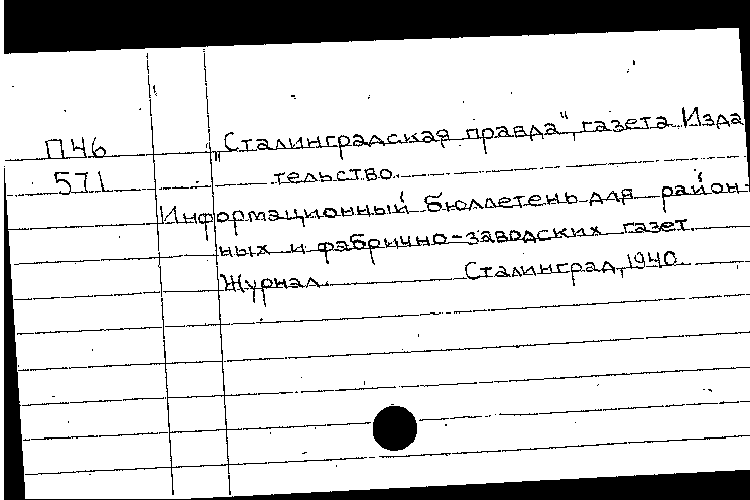 П46 „Сталинградская правда“, газета. Изда
571 тельство.
Информационный бюллетень для район-
ных и фабрично-заводских газет.
Журнал. Сталинград, 1940.